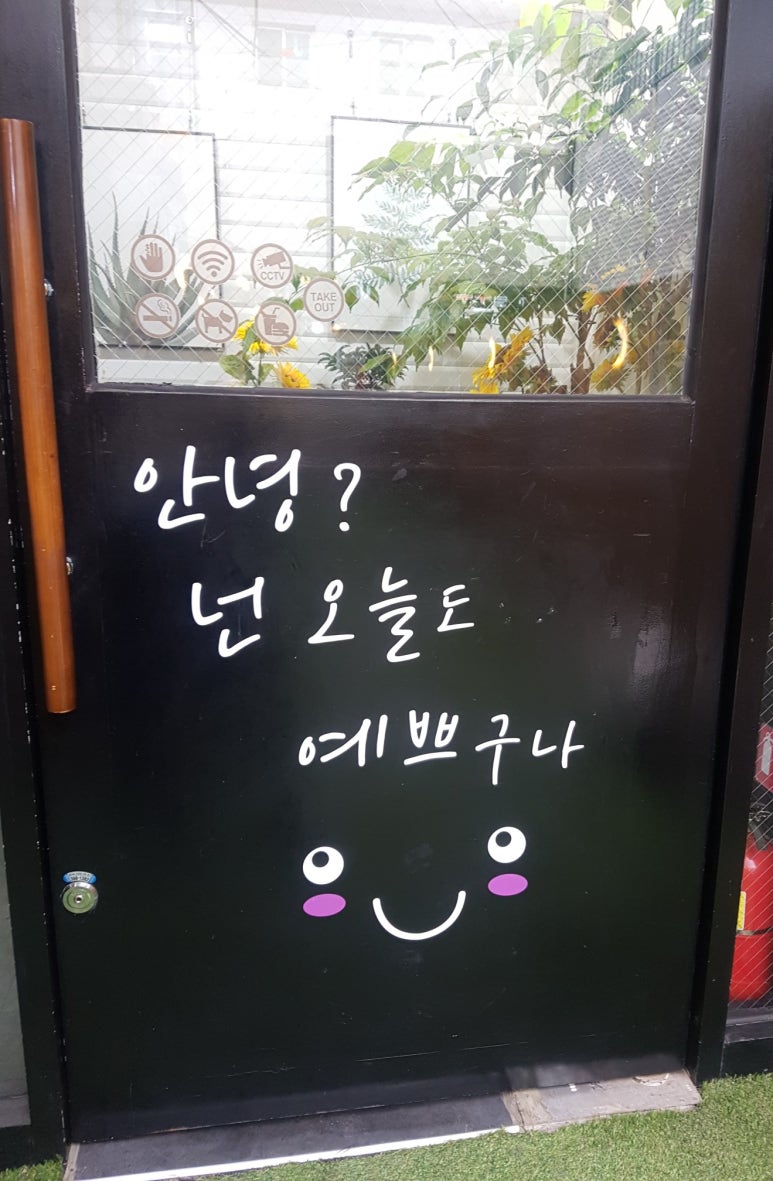 CCTV
TAKE
OUT
안녕?
넌 오늘도
예쁘구나